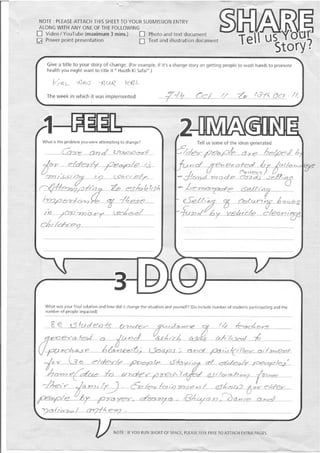 NOTE : PLEASE ATTACH THIS SHEET TO YOUR SUBMISSION ENTRY
ALONG WITH ANY ONE OF THE FOLLOWING
Video / YouTube (maximum 3 mins.)
Photo and text document
Power point presentation
Text and illustration document
SHARE
Tell us Your
Story?
Give a title to your story of change: (For example, if it's a change story on getting people to wash hands to promote
health you might want to title it " Haath Ki Safai".)
The week in which it was implemented
7th Oct 11 To 13th Oct 11
1 FEEL
What is the problem you were attempting to change?
Care and support
for elderly people is
missing in society
Attempting to establish
importance of these
in primary school
children
2 IMAGINE
Tell us some of the ideas generated
Older people are helped by
fund generated by following
- Hand made cards selling
- Lemonade selling
- Selling of colouring books
- fund by vehicle cleaning
3 DO
What was your final solution and how did it change the situation and yourself? (Do include number of students participating and the
number of people impacted)
students under guidance of 14 teachers
generated a fund which was utilised to
purchase blankets, soaps, and painkiller ointment
for elderly people staying at elderly peoples'
home (due to under privileged situation from
their family). Entertainment show for elder
people by prayer, drama, Bhajan, Dance and
national anthem.
NOTE : IF YOU RUN SHORT OF SPACE, PLEASE FEEL FREE TO ATTACH EXTRA PAGES.